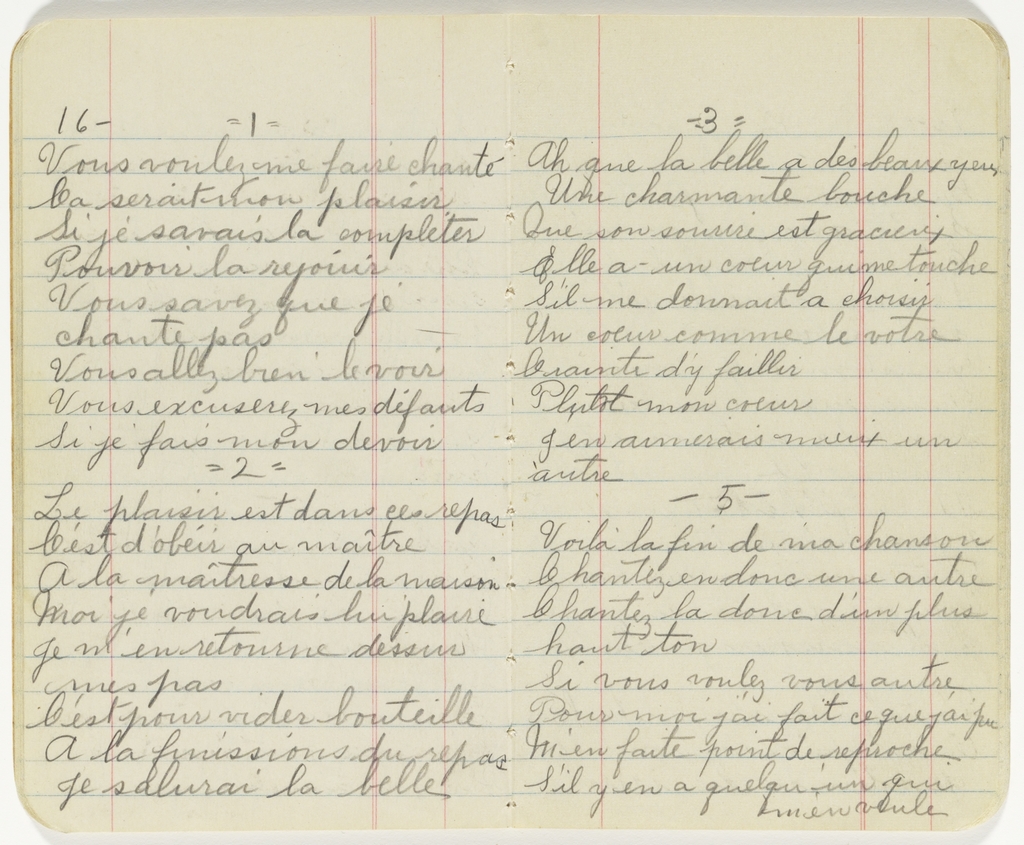 16-
=1=
Vous voulez me faire chanté
Ca serait mon plaisir
Si je savais la compléter
Pouvoir la rejouir
Vous savez que je
chante pas
Vous allez bien le voir
Vous excuserez mes défauts
Si je fais mon devoir
=2=
Le plaisir est dans ces repas
C'est d'obéir au maître
A la maîtresse de la maison
Moi je voudrais lui plaire
Je m'en retourne dessur
mes pas
C'est pour vider bouteille
A la finissions du repas
Je salurai la belle
-3=
Ah que la belle a des beaux yeux
Une charmante bouche
Que son sourire est gracieux
Elle a-un coeur qui me touche
S'il me donnait a choisir
Un coeur comme le votre
Crainte d'y faillir
Plutot mon coeur
J'en aimerais mieux un
autre
-5-
Voilà la fin de ma chanson
Chantez en donc une autre
Chantez la donc d'un plus
haut ton
Si vous voulez vous autre
Pour moi j'ai fait ce que j'ai pu
M'en faite point de reproche
S'il y en a quelqu'un qui
m'en veule